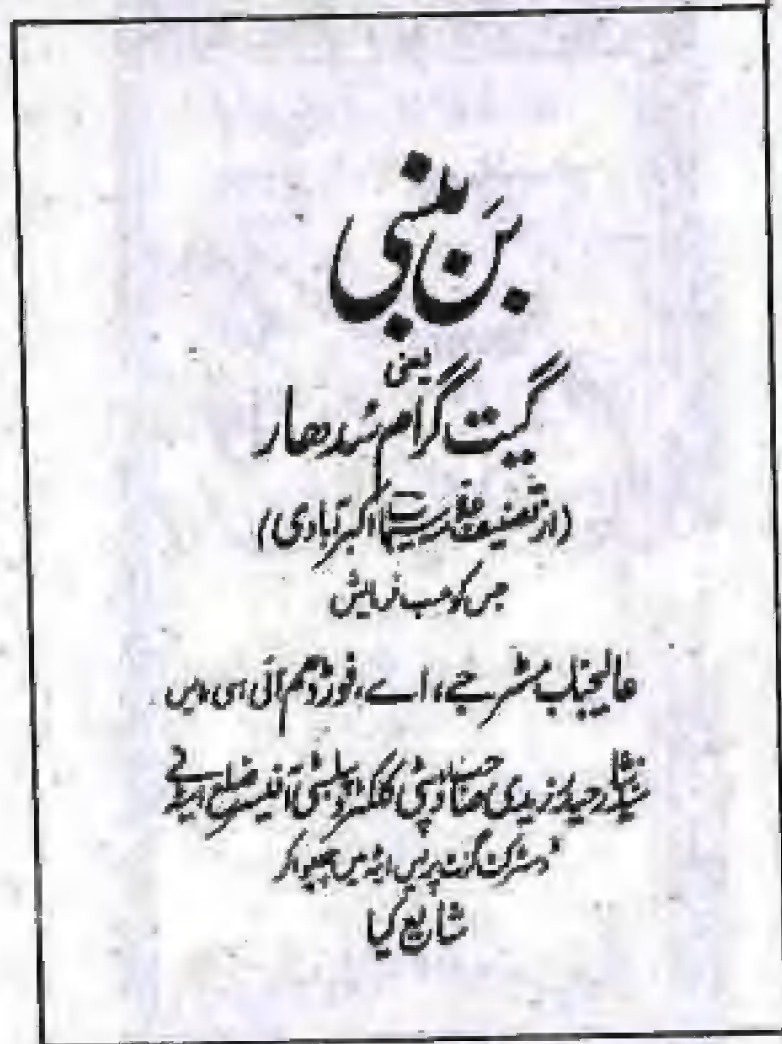 بَن بنسی
یعنی
گیت گرام سُدھار
(از تصنیف علامہ سیماب اکبرآبادی)
جس کو حسب فرمایش
عالیجناب مسٹر جے، اے، فورڈہم آئی سی ایس
سید حیدر زیدی صاحب ڈپٹی کلکٹر و پبلسٹی آفیسر ضلع ایٹہ نے
ڈسٹرکٹ گزٹ پریس ایٹہ میں چھپوا کر
شایع کیا